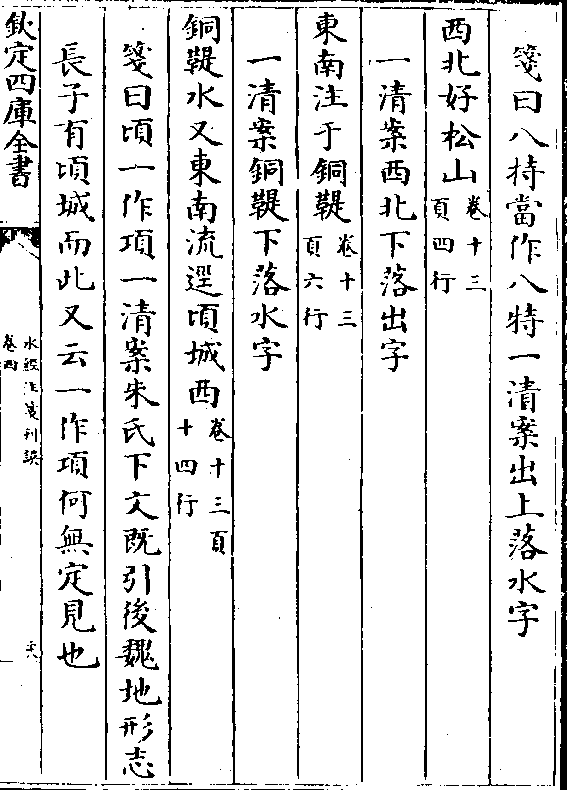 箋曰八持當作八特一清案出上落水字
西北好松山卷十三頁四行
一清案西北下落出字
東南注于銅鞮卷十三頁六行
一清案銅鞮下落水字
銅鞮水又東南流逕頃城西卷十三頁十四行
箋曰頃一作項一清案朱氏下文既引後魏地形志
長子有頃城而此又云一作項何無定見也
欽定四庫全書
水經注箋刊誤
卷四